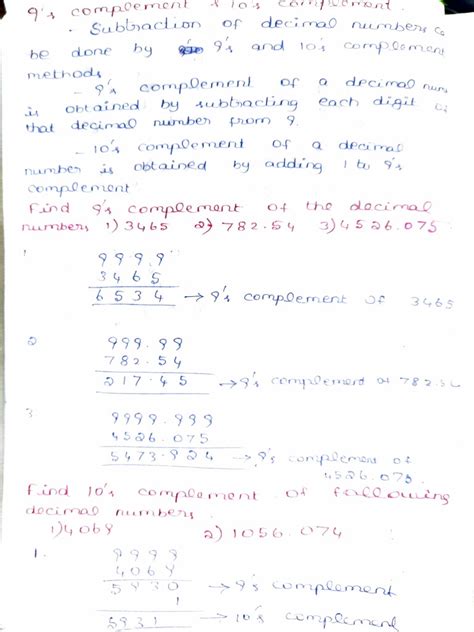 9's complement & 10's complement.
· Subtraction of decimal numbers
be done by 9's and 10's complement
methods
- 9's complement of a decimal num
is obtained by subtracting each digit
that decimal number from 9.
- 10's complement of a decimal
number is obtained by adding 1 to 9's
complement
Find 9's complement of the decimal
numbers 1) 3465 2) 782.54 3) 4526.075
1
9999
3465
6534 → 9's complement of 3465
2
999.99
782.54
217.45 → 9's complement of 782.54
3
9999.999
4526.075
5473.924 → 9's complement of
4526.075.
Find 10's complement of following
decimal numbers
1) 4069 2) 1056.074
1.
9999
4069
5930 → 9's complement
1
5931 → 10's complement